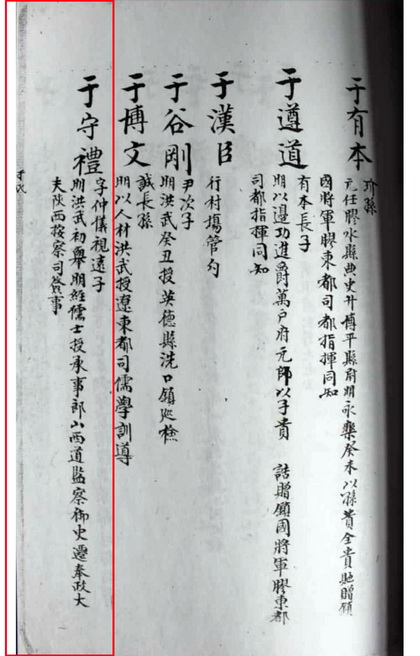 于有本
珍孫
元任膠水縣典史升博平縣尉明永樂癸未以孫貴全貴馳贈顯
國將軍膠東都司都指揮同知
于遵道
有本長子
明以邊功進爵萬戶府元師以子貴 誥贈顯國將軍膠東都
司都指揮同知
于漢臣
行村場管勾
于谷剛
尹次子
明洪武癸丑授英德縣洗口鎮巡檢
于博文
誠長孫
明以人材洪武授遼東都司儒學訓導
于守禮
子仲儀視遠子
明洪武初舉明經儒士授承事郎山西道監察御史遷奉政大
夫陝西按察司僉事